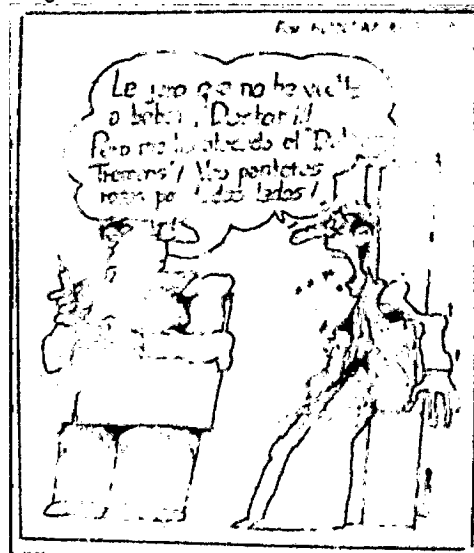 Por
Le juro que no he vuelto
a beber, Doctor!!
Pero me ha atacado el "Delirium
Tremens"! Veo panteras
rosas por todos lados!